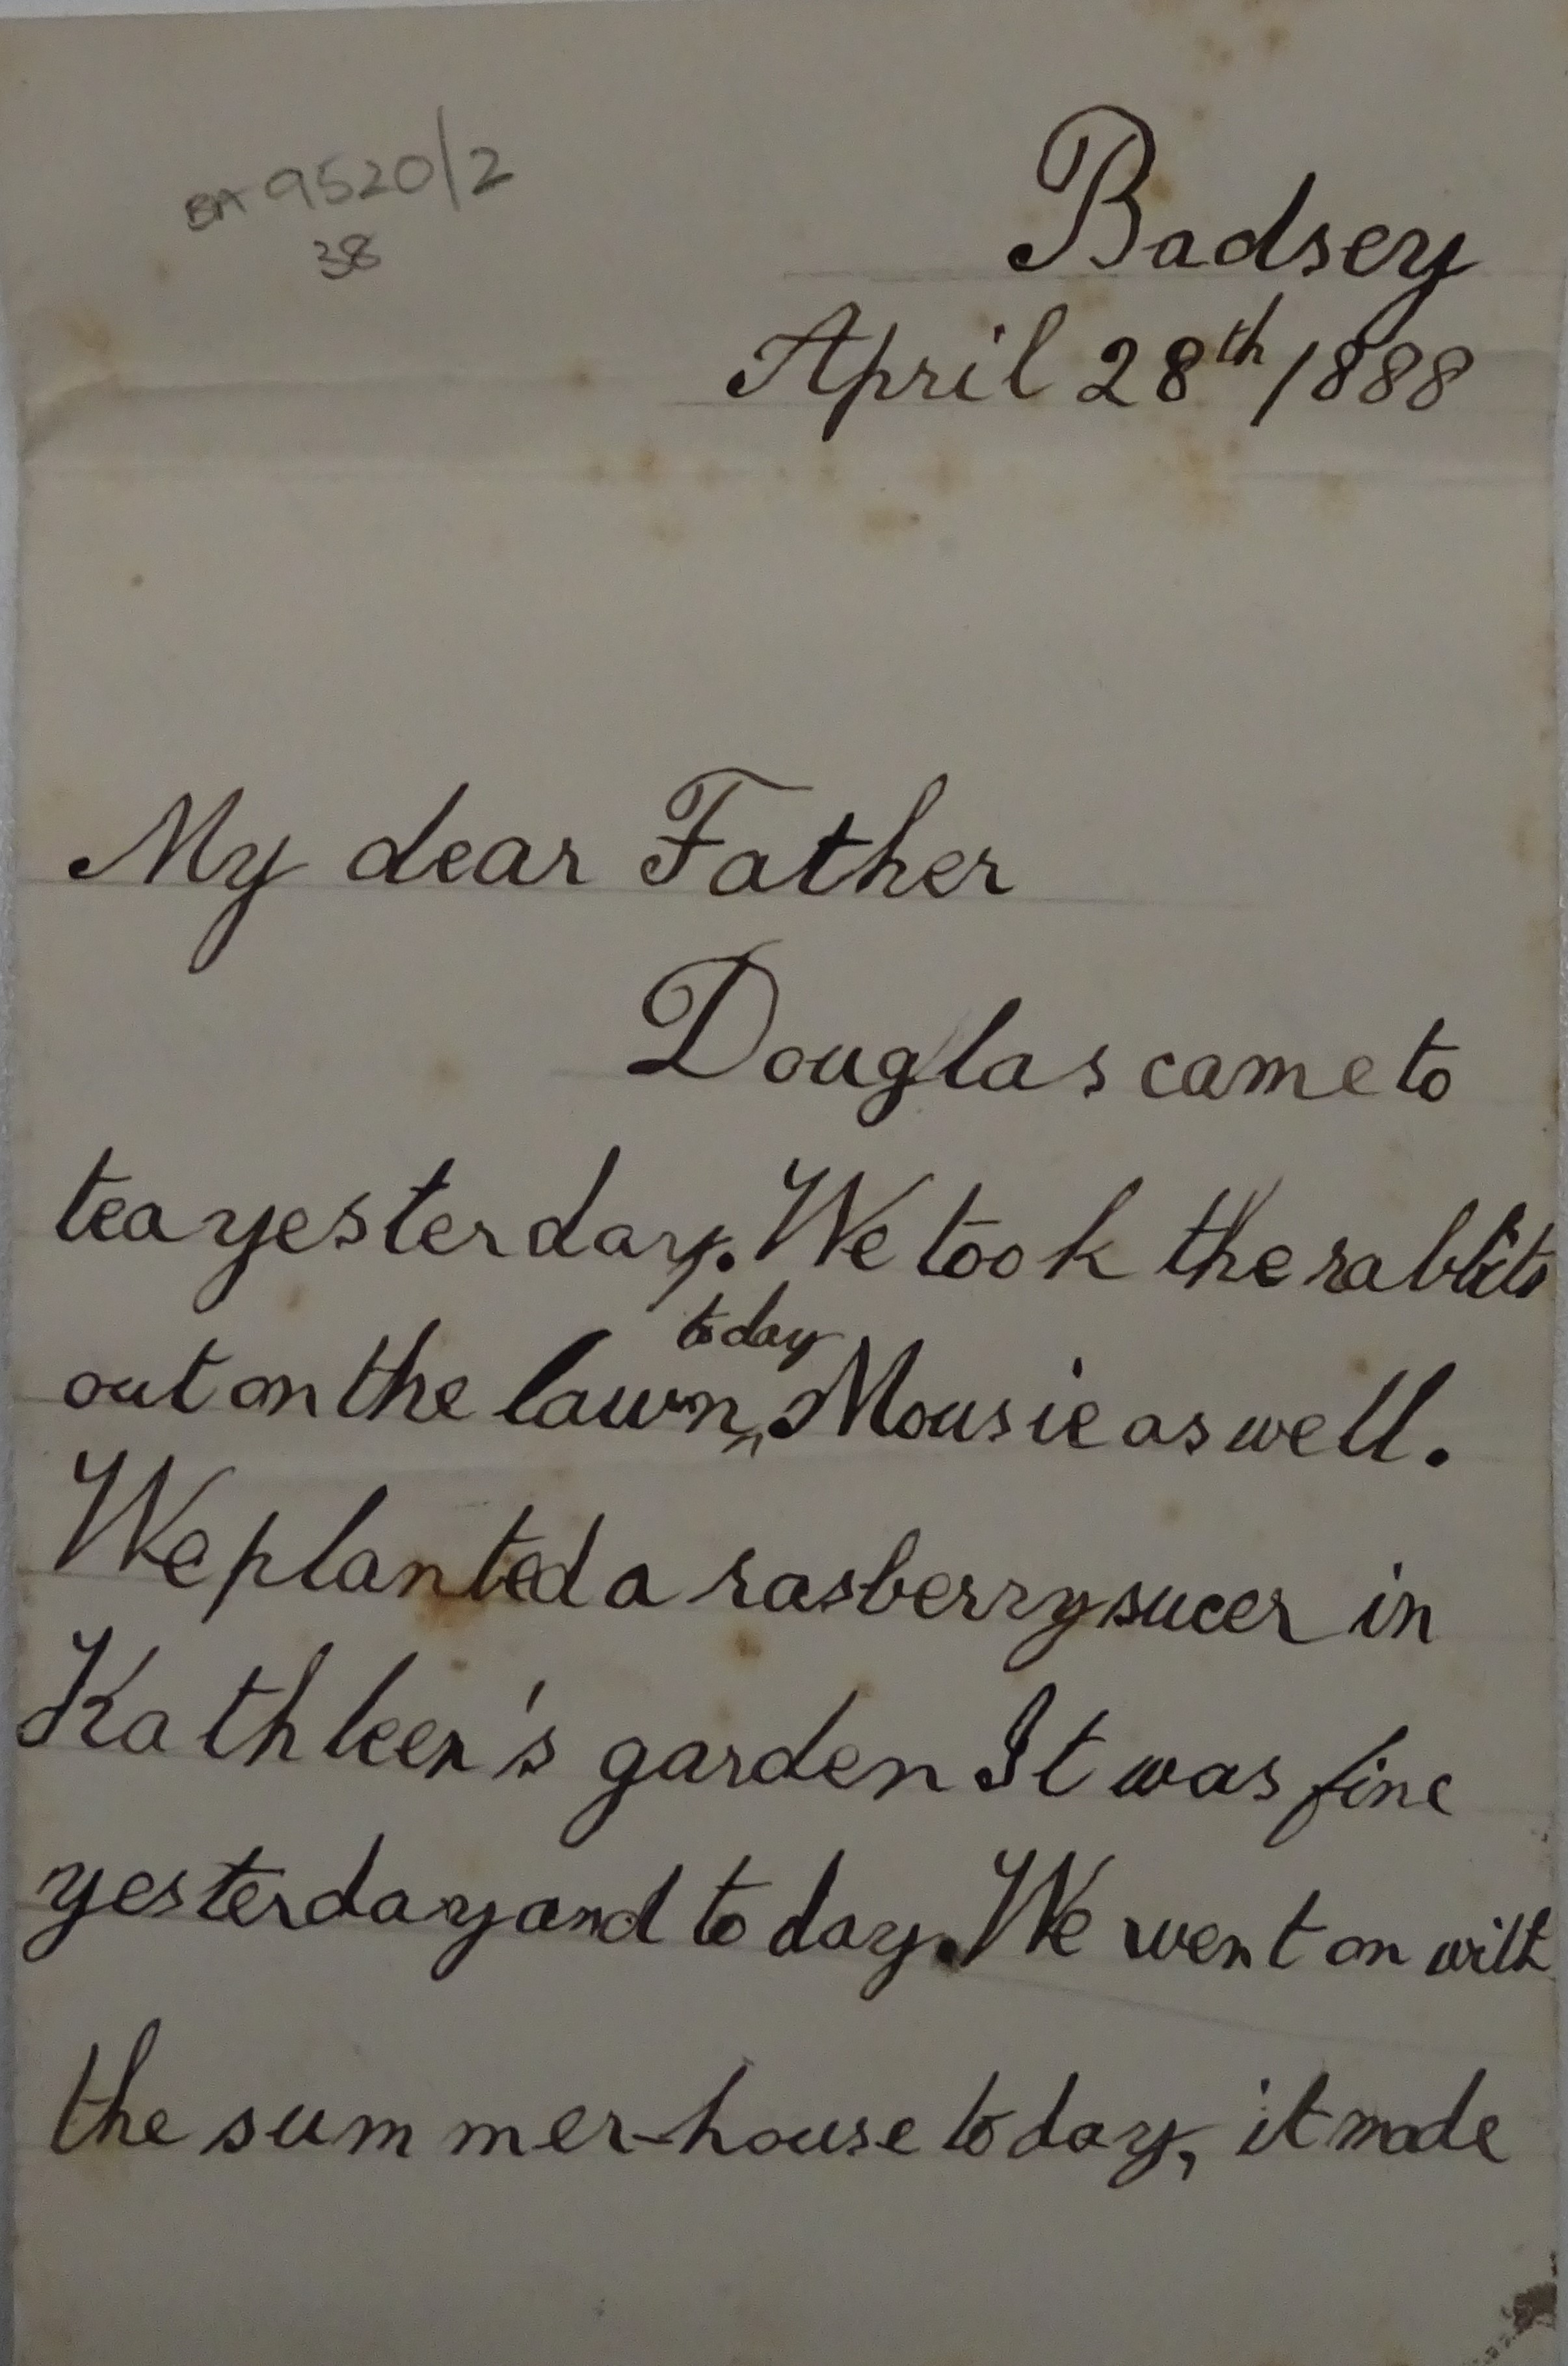 BA 9520/2
38
Badsey
April 28th/1888
My dear Father
Douglas came to
tea yesterday. We took the rabbits
today
out on the lawn, Mousie as well.
We planted a rasberry sucer in
Kathleen's garden It was fine
yesterday and to day. We went on with
the summer-house to day, it made